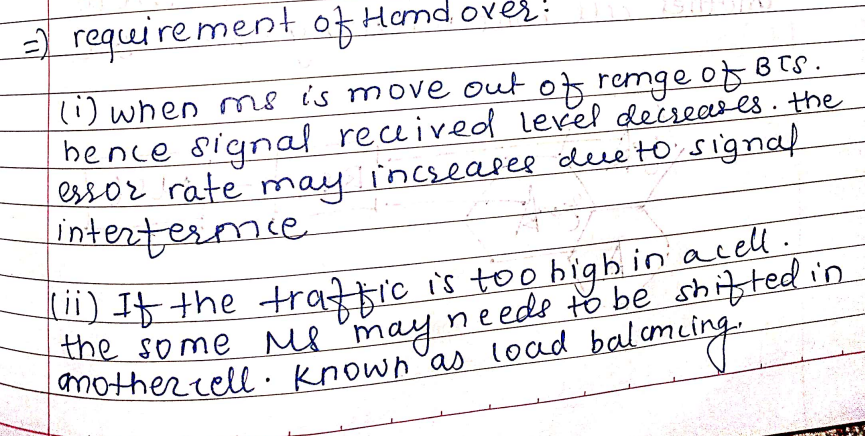 => requirement of Handover:
(i) when ms is move out of range of BTS.
hence signal received level decreases. the
error rate may increases due to signal
interfernce
(ii) If the traffic is too high in a cell.
the some MS may needs to be shifted in
another cell. Known as load balancing.